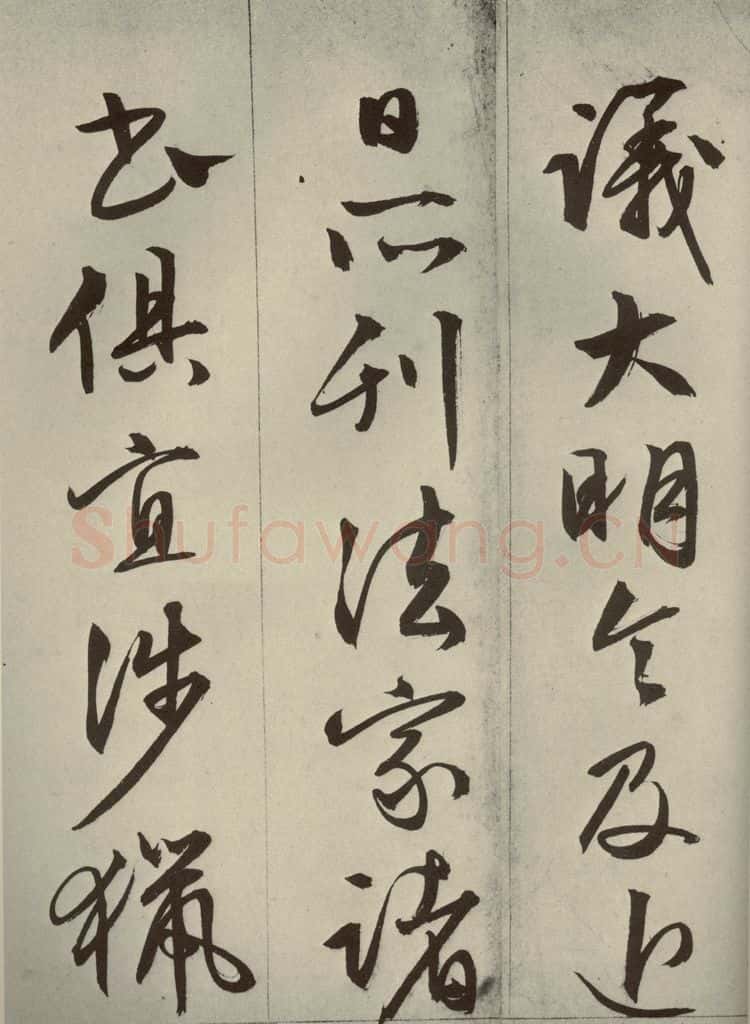 議大明令及近
日所刊法家諸
書俱宜涉獵
Shufawang.CN